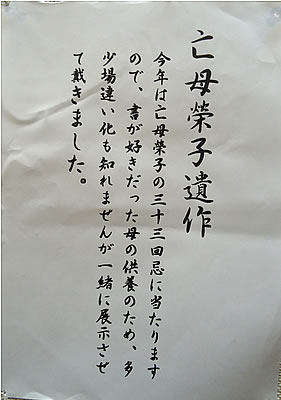 亡母榮子遺作
今年は亡母榮子の三十三回忌に当たります
ので、書が好きだった母の供養のため、多
少場違い化も知れませんが一緒に展示させ
て戴きました。